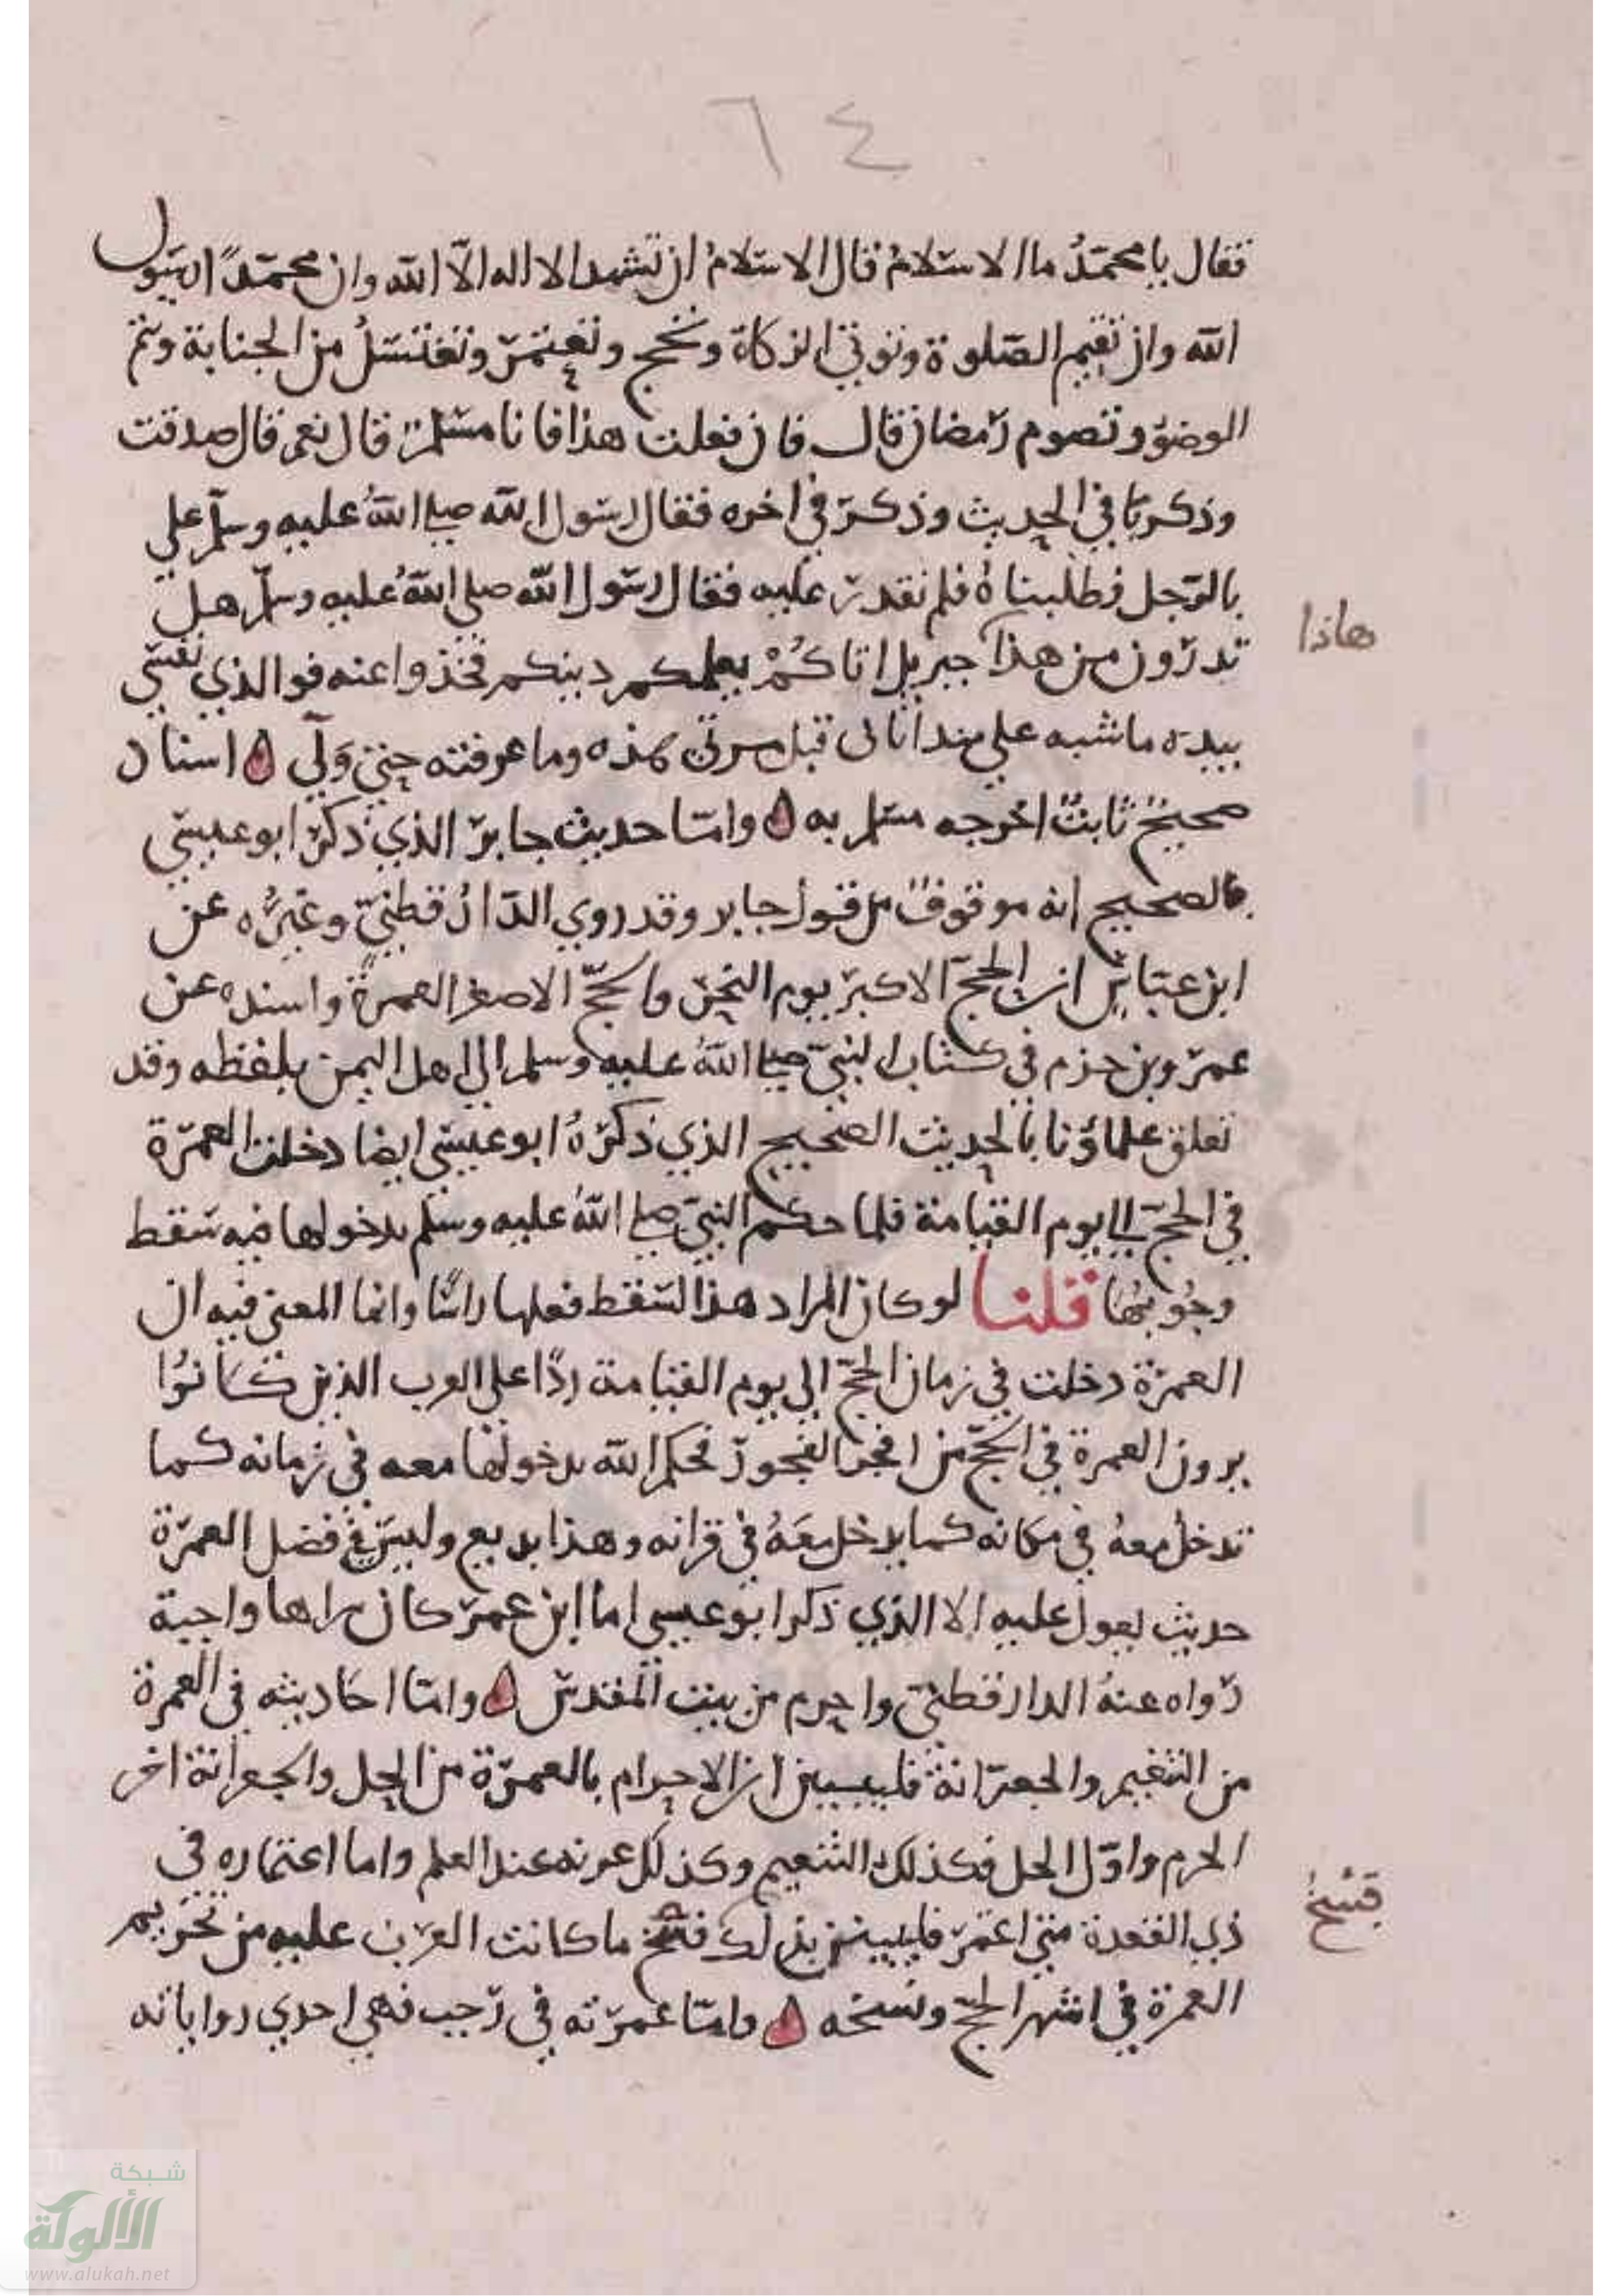 ٦٤
فقال يا محمدُ ما الاسلامُ قال الاسلامُ ان تشهد الا اله الاّ الله وان محمّدًا رسول
الله وان تقيم الصلوة وتوتي الزكاة وتحج وتعتمر وتغتسلُ من الجنابة وتتم
الوضوَ وتصوم رمضان قال فان فعلت هذا فانا مسلم قال نعم قال صدقت
وذكر باقي الحديث وذكر في اخره فقال رسول الله صلى اللهُ عليه وسلّم علي
بالرجل فطلبناهُ فلم نقدر عليه فقال رسول الله صلى اللهُ عليه وسلّم هل
هاذا
تدرون من هذا جبريل اتاكُمْ يعلمكم دينكم فخذوا عنه فوالذي نفسي
بيده ما شبه علي منذ اتاني قبل مرتي هذه وما عرفته حتى وَلّي ه اسناد
صحيحٌ ثابتٌ اخرجه مسلم به ه وامّا حديث جابر الذي ذكر ابو عيسي
فالصحيح انه موقوفٌ من قول جابر وقد روي الدّارُقطنيّ وغيرُه عن
ابن عباس ان الحجّ الاكبر يوم النحر والحجّ الاصغر العمرةُ واسنده عن
عمرو بن حزم في كتاب النبيّ صلى اللهُ عليه وسلم الي اهل اليمن بلفظه وقد
تعلق علماؤنا بالحديث الصحيح الذي ذكرهُ ابو عيسي ايضا دخلت العمرة
في الحجّ الي يوم القيامة فلما حكم النبيّ صلى اللهُ عليه وسلم بدخولها فيه سقط
وجُوبُها قلنا لو كان المراد هذا لسقط فعلها راسًا وانما المعنى فيه ان
العمرة دخلت في زمان الحجّ الي يوم القيامة ردًا على العرب الذين كانوُا
يرون العمرة في الحجّ من افجر الفجور فحكم الله بدخولها معه في زمانه كما
تدخل معهُ في مكانه كما يدخل معَهُ في قرانه وهذا بديع وليس في فضل العمرة
حديث يعول عليه الا الذي ذكر ابو عيسي اما ابن عمر كان يراها واجبة
رواه عنهُ الدارقطني واحرم من بيت المقدس ه وامّا احاديثه في العمرة
من التنعيم والجعرانة فليبين ان الاحرام بالعمرة من الحل والجعرانة اخر
الحرم واوّل الحل فكذلك التنعيم وكذلك عرنه عند العلم واما اعتماره في
ذي القعدة متى اعتمر فليبين بذلك فسخ ما كانت العرب عليه من تحريم
فسخ
العمرة في اشهر الحجّ ونسخه ه وامّا عمرته في رجب فهي احدي رواياته
شبكة
الألوكة
www.alukah.net